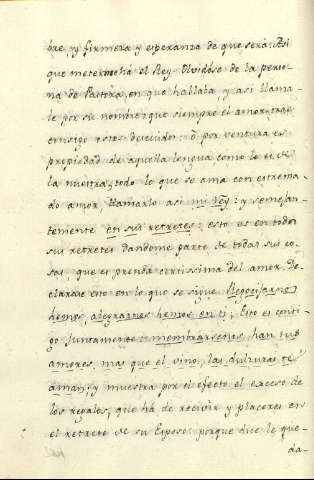 bre, y firmeza y esperanza de que será. Asi
que metermehá el Rey. Olvidóse de la perso
na de Pastora, en que hablaba, y asi llama-
le por su nombre: que siempre el amor trae
consigo estos descuidos: ó por ventura es
propiedad de aquella lengua como lo es de
la nuestra, todo lo que se ama con estrema-
do amor, llamarlo asi mi rey: y semejan-
temente en sus retretes: esto es en todos
sus retretes dandome parte de todas sus co-
sas, que es prenda certissima del amor. De-
clarase esto en lo que se sigue Regocijarnos
hemos, alegrarnos hemos en ti; Esto es conti-
go juntamente: membrarsenos han tus
amores mas que el vino, las dulzuras te
aman; y muestra por el efecto el exceso de
los regalos, que há de recivir y placeres en
el retrete de su Esposo: porque dice le que-
da-